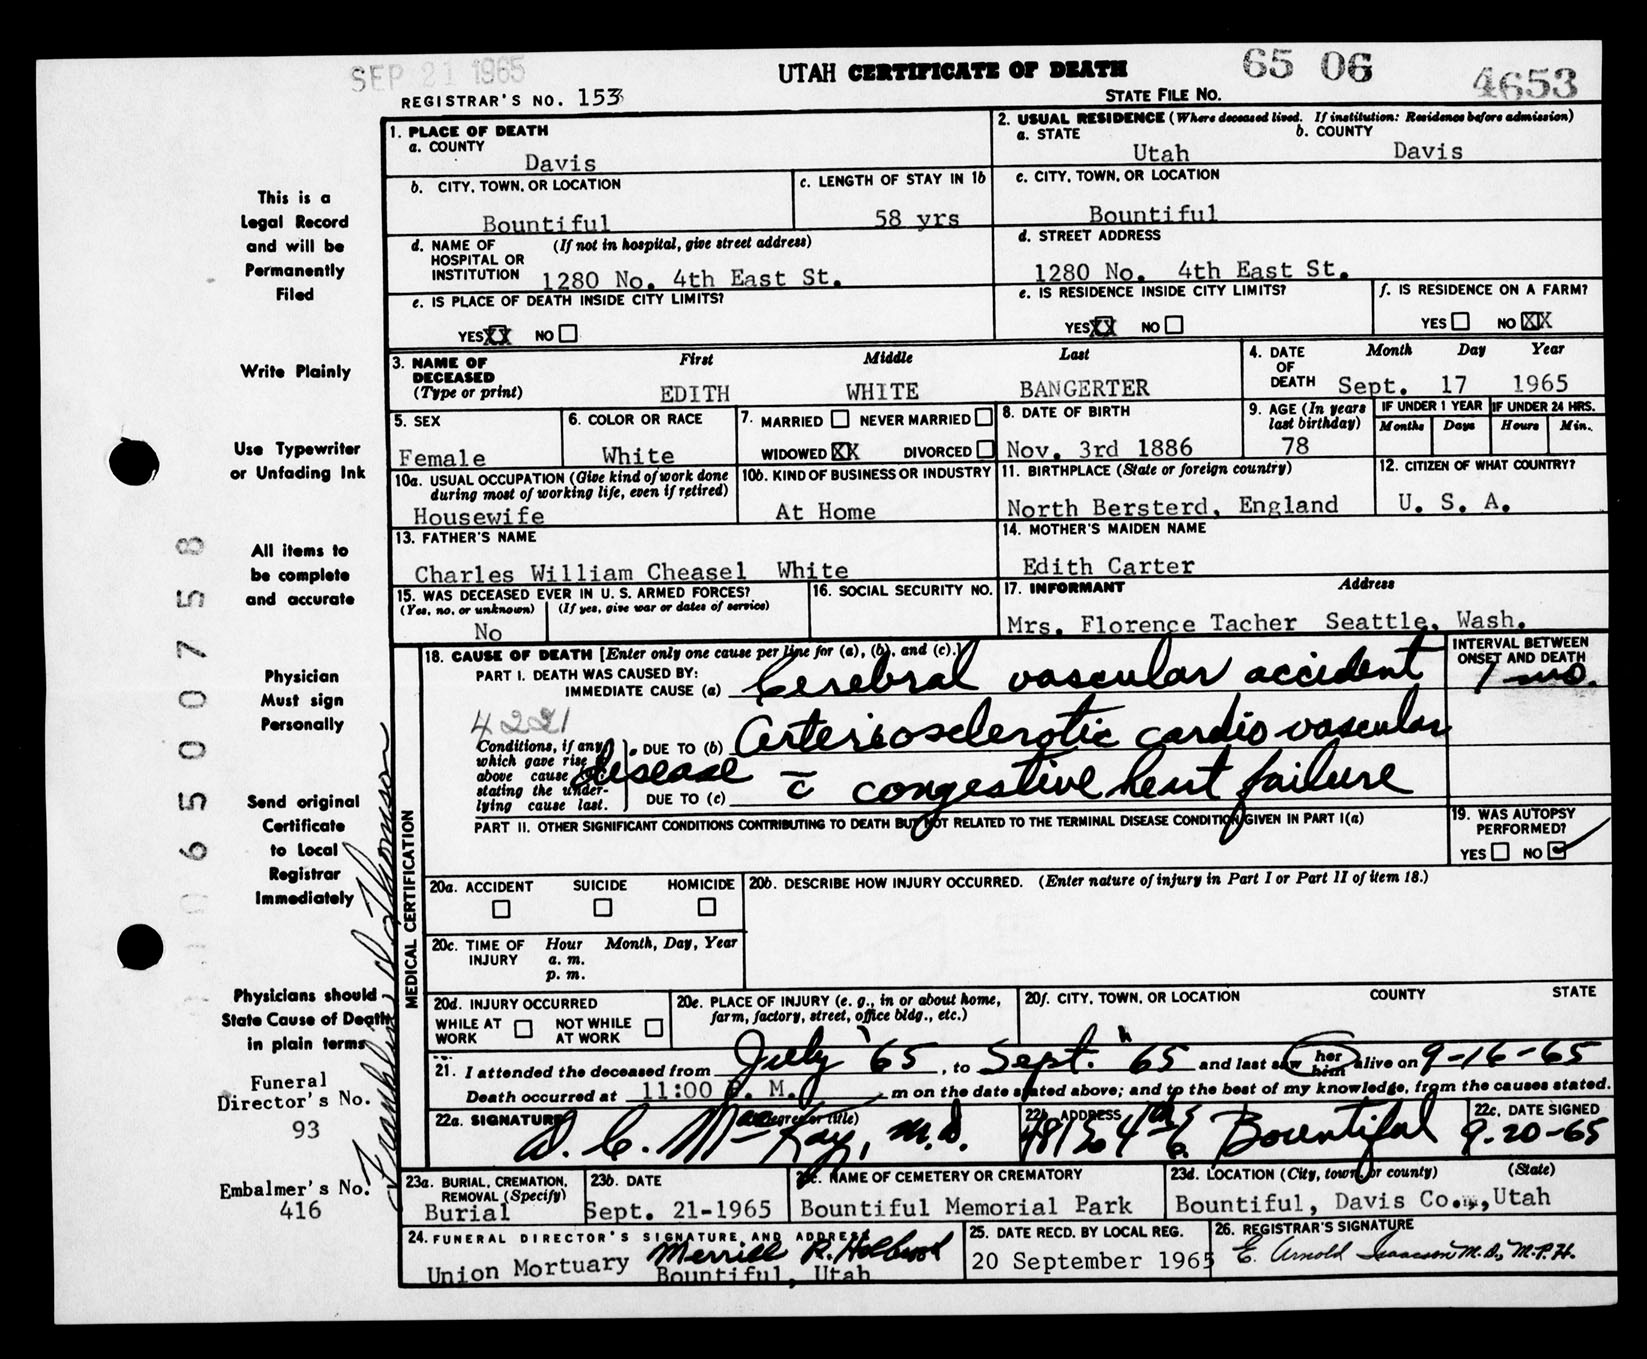 SEP 21 1965
UTAH CERTIFICATE OF DEATH
65 06 4653
REGISTRAR'S NO. 153
STATE FILE NO.
This is a
Legal Record
and will be
Permanently
Filed
Write Plainly
Use Typewriter
or Unfading Ink
All items to
be complete
and accurate
Physician
Must sign
Personally
Send original
Certificate
to Local
Registrar
Immediately
Physicians should
State Cause of Death
in plain terms
Funeral
Director's No.
93
Embalmer's No.
416
6 5 0 0 7 5 8
1. PLACE OF DEATH
a. COUNTY
Davis
2. USUAL RESIDENCE (Where deceased lived. If institution: Residence before admission)
a. STATE b. COUNTY
Utah Davis
b. CITY, TOWN, OR LOCATION
Bountiful
c. LENGTH OF STAY IN 1b
58 yrs
c. CITY, TOWN, OR LOCATION
Bountiful
d. NAME OF (If not in hospital, give street address)
HOSPITAL OR
INSTITUTION 1280 No. 4th East St.
d. STREET ADDRESS
1280 No. 4th East St.
e. IS PLACE OF DEATH INSIDE CITY LIMITS?
YES XX NO
e. IS RESIDENCE INSIDE CITY LIMITS?
YES XX NO
f. IS RESIDENCE ON A FARM?
YES NO XX
3. NAME OF First Middle Last
DECEASED
(Type or print) EDITH WHITE BANGERTER
4. DATE Month Day Year
OF
DEATH Sept. 17 1965
5. SEX
Female
6. COLOR OR RACE
White
7. MARRIED NEVER MARRIED
WIDOWED XX DIVORCED
8. DATE OF BIRTH
Nov. 3rd 1886
9. AGE (In years
last birthday)
78
IF UNDER 1 YEAR
Months Days
IF UNDER 24 HRS.
Hours Min.
10a. USUAL OCCUPATION (Give kind of work done
during most of working life, even if retired)
Housewife
10b. KIND OF BUSINESS OR INDUSTRY
At Home
11. BIRTHPLACE (State or foreign country)
North Bersterd, England
12. CITIZEN OF WHAT COUNTRY?
U. S. A.
13. FATHER'S NAME
Charles William Cheasel White
14. MOTHER'S MAIDEN NAME
Edith Carter
15. WAS DECEASED EVER IN U. S. ARMED FORCES?
(Yes, no, or unknown) (If yes, give war or dates of service)
No
16. SOCIAL SECURITY NO.
17. INFORMANT Address
Mrs. Florence Tacher Seattle, Wash.
MEDICAL CERTIFICATION
18. CAUSE OF DEATH [Enter only one cause per line for (a), (b), and (c).]
PART I. DEATH WAS CAUSED BY:
IMMEDIATE CAUSE (a) Cerebral vascular accident
INTERVAL BETWEEN
ONSET AND DEATH
1 mo.
4221
Conditions, if any,
which gave rise
above cause
stating the under-
lying cause last.
DUE TO (b) Arteriosclerotic cardio vascular
disease c̄ congestive heart failure
DUE TO (c)
PART II. OTHER SIGNIFICANT CONDITIONS CONTRIBUTING TO DEATH BUT NOT RELATED TO THE TERMINAL DISEASE CONDITION GIVEN IN PART I(a)
19. WAS AUTOPSY
PERFORMED?
YES NO ✓
20a. ACCIDENT SUICIDE HOMICIDE
20b. DESCRIBE HOW INJURY OCCURRED. (Enter nature of injury in Part I or Part II of item 18.)
20c. TIME OF Hour Month, Day, Year
INJURY a. m.
p. m.
20d. INJURY OCCURRED
WHILE AT NOT WHILE
WORK AT WORK
20e. PLACE OF INJURY (e. g., in or about home,
farm, factory, street, office bldg., etc.)
20f. CITY, TOWN, OR LOCATION COUNTY STATE
21. I attended the deceased from July '65, to Sept. '65 and last saw her him alive on 9-16-65
Death occurred at 11:00 P. M. m on the date stated above; and to the best of my knowledge, from the causes stated.
22a. SIGNATURE (Degree or title)
D. C. MacKay, M.D.
22b. ADDRESS
Bountiful
22c. DATE SIGNED
9-20-65
23a. BURIAL, CREMATION,
REMOVAL (Specify)
Burial
23b. DATE
Sept. 21-1965
23c. NAME OF CEMETERY OR CREMATORY
Bountiful Memorial Park
23d. LOCATION (City, town, or county) (State)
Bountiful, Davis Co., Utah
24. FUNERAL DIRECTOR'S SIGNATURE AND ADDRESS
Union Mortuary Merrill R. Holbrook
Bountiful, Utah
25. DATE RECD. BY LOCAL REG.
20 September 1965
26. REGISTRAR'S SIGNATURE
E. Arnold Isaacson M.D., M.P.H.
Franklin D. Thomson